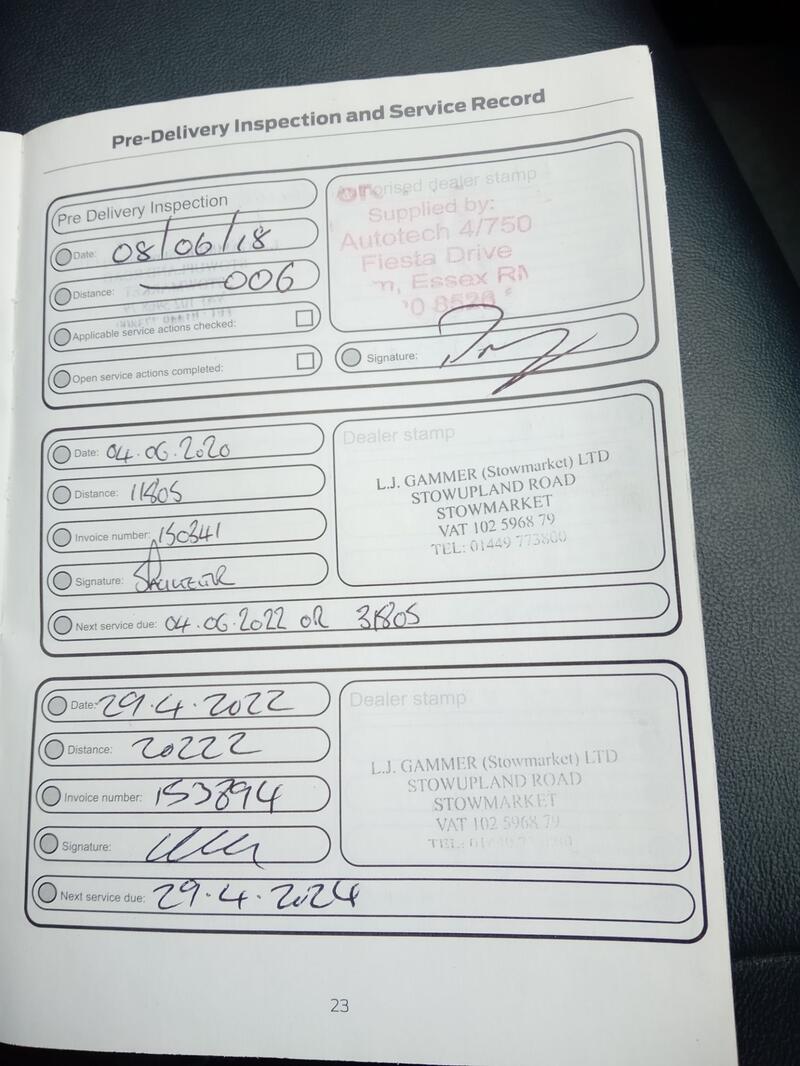 Pre-Delivery Inspection and Service Record
Pre Delivery Inspection
Date: 08/06/18
Distance: 006
Applicable service actions checked:
Open service actions completed:
Authorised dealer stamp
Supplied by:
Autotech 4/750
Fiesta Drive
Essex
Signature:
Date: 04.06.2020
Distance: 11805
Invoice number: 150341
Signature:
Next service due: 04.06.2022 OR 31805
Dealer stamp
L.J. GAMMER (Stowmarket) LTD
STOWUPLAND ROAD
STOWMARKET
VAT 102 5968 79
TEL: 01449 773800
Date: 29.4.2022
Distance: 20222
Invoice number: 153894
Signature:
Next service due: 29.4.2024
Dealer stamp
L.J. GAMMER (Stowmarket) LTD
STOWUPLAND ROAD
STOWMARKET
VAT 102 5968 79
TEL:
23